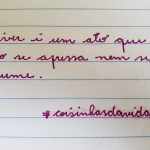 iver é um ato que
o se apressa nem se
ume.
#coisinhasdavida